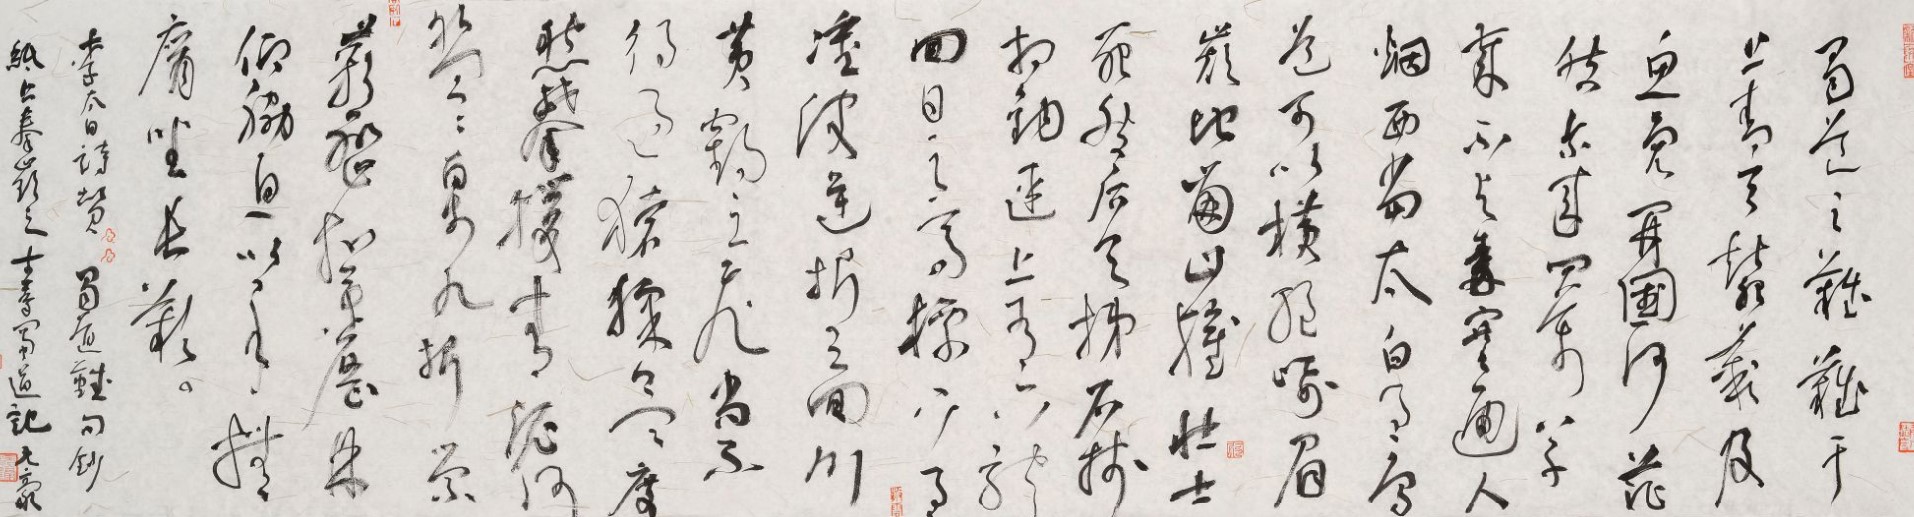 蜀道之難難于
上青天蠶叢及
魚鳧開國何茫
然尔來四万八千
歲不與秦塞通人
烟西當太白有鳥
道可以橫絕峨眉
巔地崩山摧壯士
死然后天梯石棧
相鉤連上有六龍
回日之高標下有
衝波逆折之回川
黃鶴之飛尚不
得過猿猱欲度
愁攀援青泥何
盤盤百步九折縈
巖巒捫參歷井
仰脅息以手撫
膺坐長歎
李太白詩贊 蜀道難句鈔
紙上 之 蜀道記